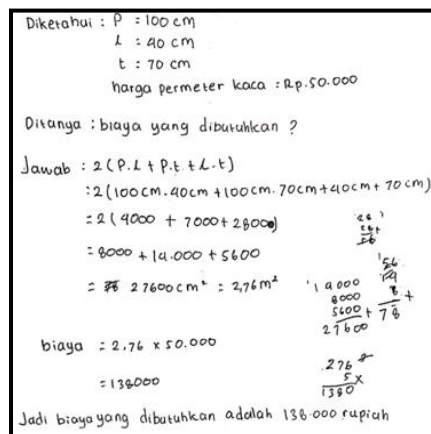 Diketahui : P = 100 cm
l : 40 cm
t : 70 cm
harga permeter kaca : Rp.50.000
Ditanya : biaya yang dibutuhkan ?
Jawab : 2 (P.l + P.t + l.t)
: 2 (100 cm. 40 cm + 100 cm. 70 cm + 40 cm + 70 cm)
= 2 (4000 + 7000 + 2800)
= 8000 + 14.000 + 5600
= 27600 cm² = 2,76 m²
14000
8000
5600 +
27600
56
8 +
78
biaya : 2.76 x 50.000
= 138000
276
5 x
1380
Jadi biaya yang dibutuhkan adalah 138.000 rupiah